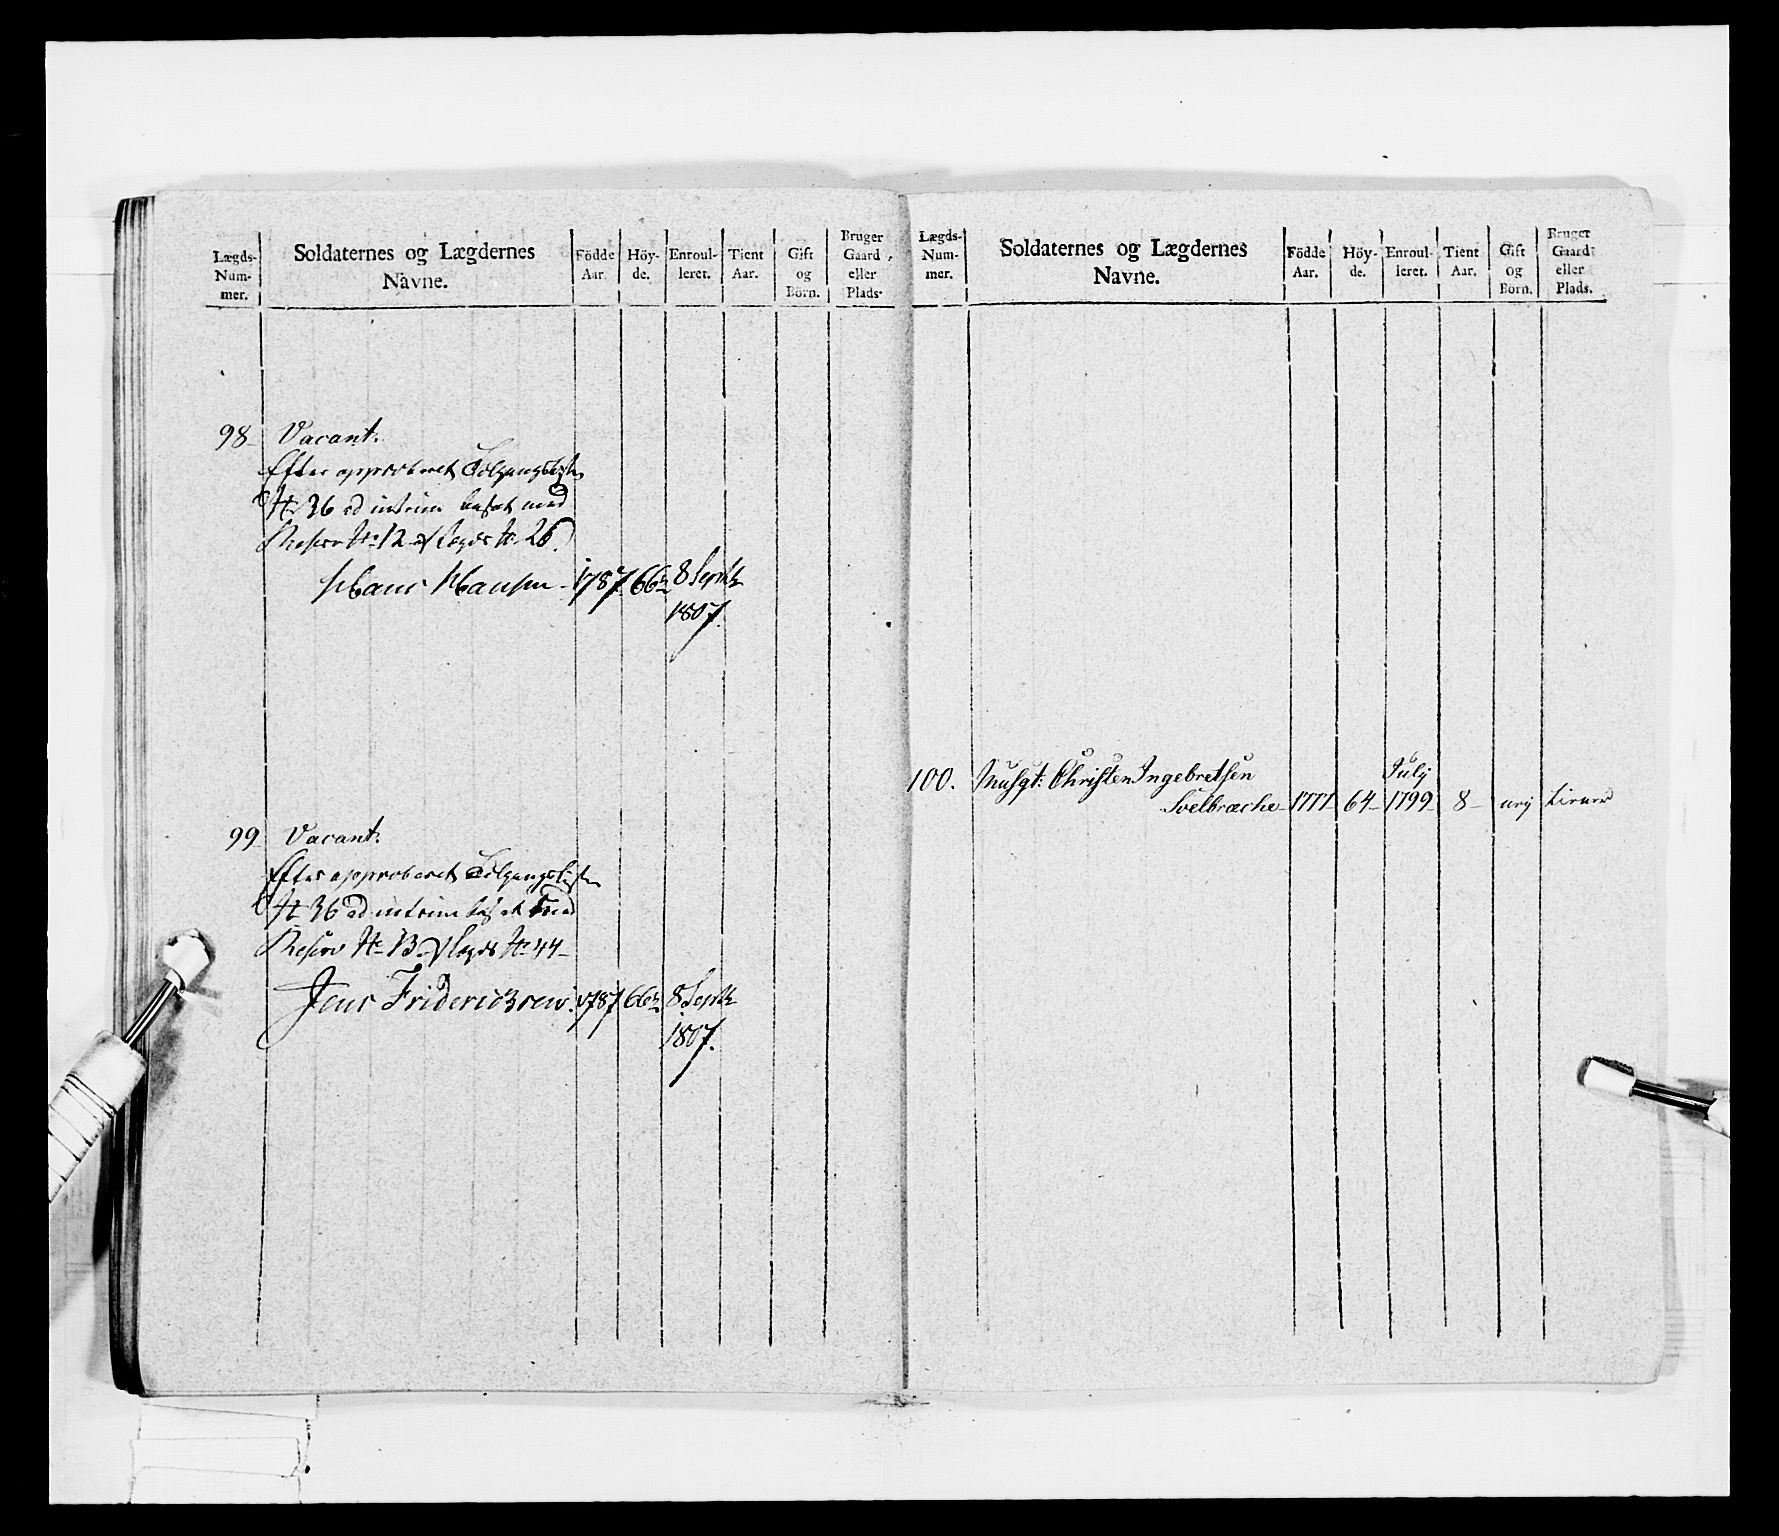 Lægds-
Num-
mer.
Soldaternes og Lægdernes
Navne.
Födde
Aar.
Höy-
de.
Enroul-
leret.
Tient
Aar.
Gift
og
Börn.
Bruger
Gaard
eller
Plads.
98- Vacant.
Efter approberet Tilgangsliste
No 36 ad intrim besat med
Reserv No 12 af Lægds No 26.
Hans Hansen - 1787 66½ 8 Septb
1807.
99- Vacant.
Efter approberet Tilgangsliste
No 36 ad intrim besat med
Reserv No 13 af Lægds No 44-
Jens Fridericksen. 1787 66½ 8 Septb
1807.
Lægds-
Num-
mer.
Soldaternes og Lægdernes
Navne.
Födde
Aar.
Höy-
de.
Enroul-
leret.
Tient
Aar.
Gift
og
Börn.
Bruger
Gaard
eller
Plads.
100. Musqt: Christen Ingebretsen July
Soelbræche - 1777- 64- 1799- 8- nej tiener